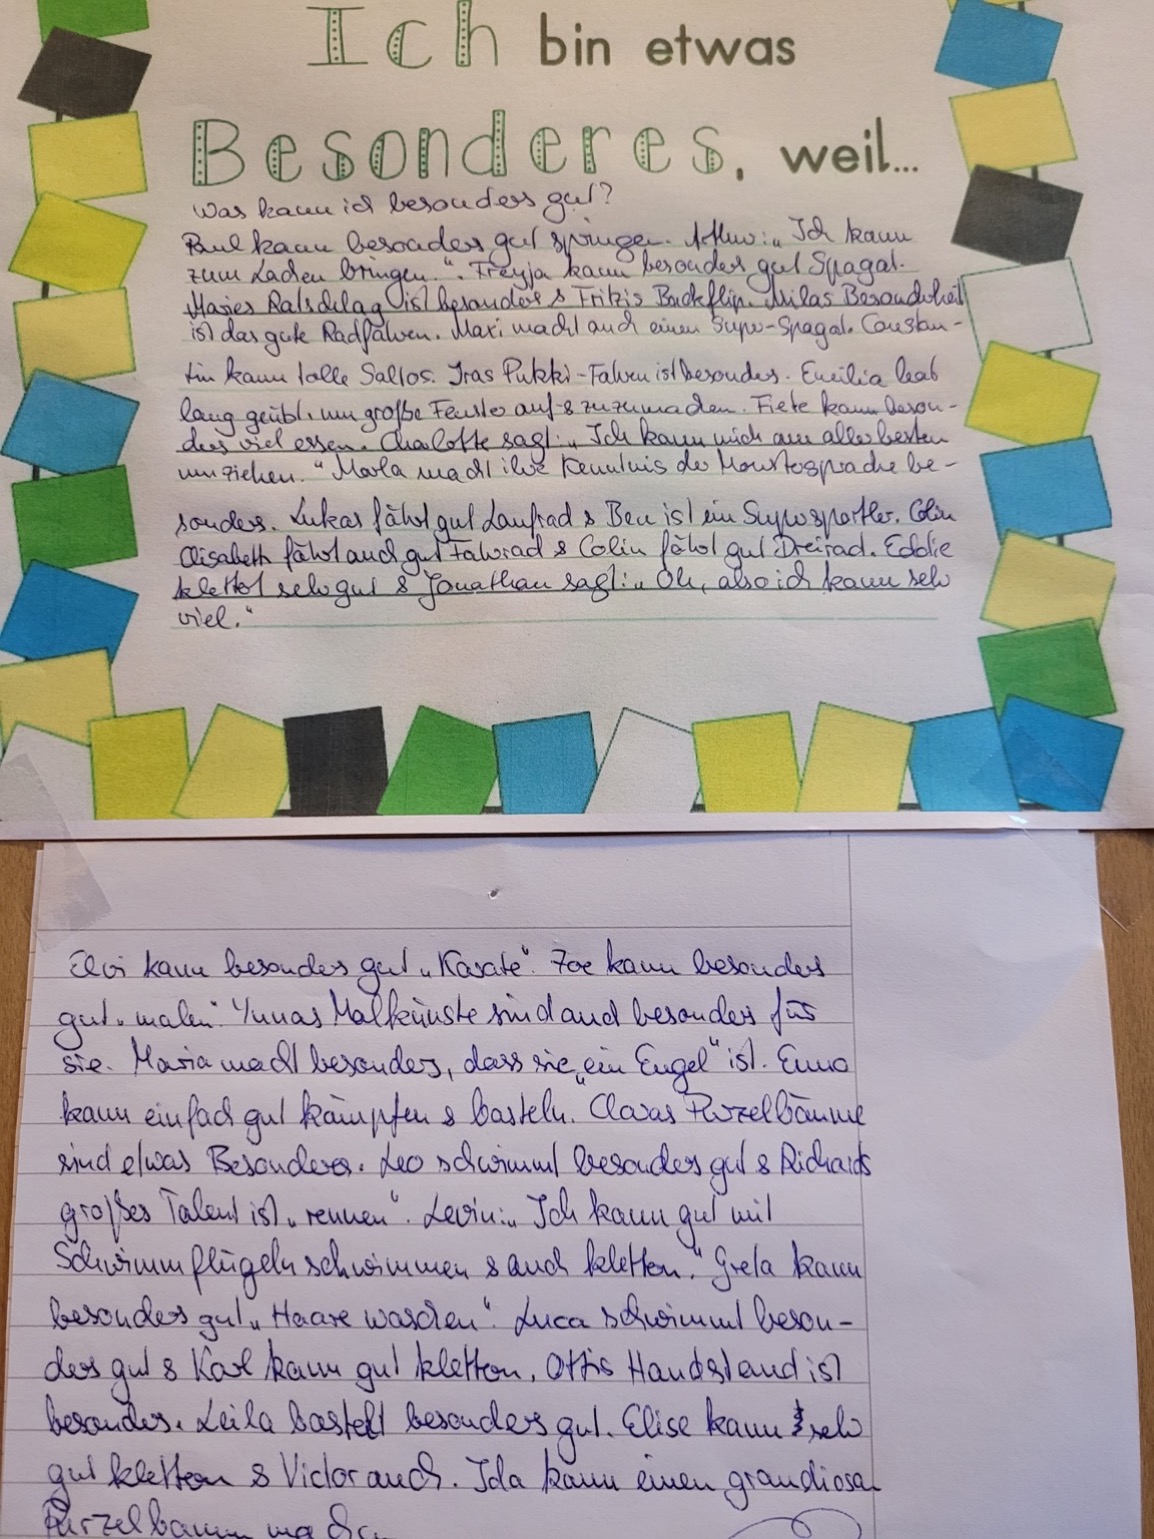 Ich bin etwas
Besonderes, weil...
Was kann ich besonders gut?
Paul kann besonders gut springen. Arthur: „Ich kann
zum Lachen bringen.". Freyja kann besonders gut Spagat.
Maries Ratschlag ist besonders & Fritzis Backflip. Milas Besonderheit
ist das gute Radfahren. Maxi macht auch einen Super-Spagat. Constan-
tin kann tolle Saltos. Iras Pukki-Fahren ist besonders. Emilia hat
lang geübt, um große Fenster auf- & zuzumachen. Fiete kann beson-
ders viel essen. Charlotte sagt: „Ich kann mich am allerbesten
umziehen." Marla macht ihre Kenntnis der Monstersprache be-
sonders. Lukas fährt gut Laufrad & Ben ist ein Supersportler. Colin
Elisabeth fährt auch gut Fahrrad & Colin fährt gut Dreirad. Eddie
klettert sehr gut & Jonathan sagt: „Oh, also ich kann sehr
viel."
Elvi kann besonders gut „Karate". Zoe kann besonders
gut „malen". Yunas Malkünste sind auch besonders für
sie. Maria macht besonders, dass sie „ein Engel" ist. Enno
kann einfach gut kämpfen & basteln. Claras Purzelbäume
sind etwas Besonderes. Leo schwimmt besonders gut & Richards
großes Talent ist „rennen". Levin: „Ich kann gut mit
Schwimmflügeln schwimmen & auch klettern." Greta kann
besonders gut „Haare waschen". Luca schwimmt beson-
ders gut & Karl kann gut klettern. Ottis Handstand ist
besonders. Leila bastelt besonders gut. Elise kann sehr
gut klettern & Victor auch. Ida kann einen grandiosen
Purzelbaum machen